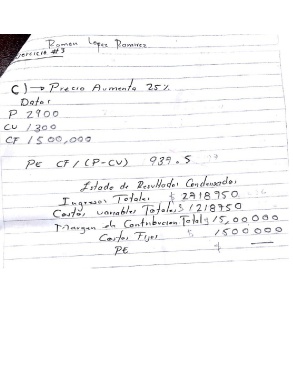 Ramon Lopez Ramirez
Ejercicio #3
C) → Precio Aumenta 25%
Datos
P 2900
CU 1300
CF 1500,000
PE CF / (P-CV) 937.5
Estado de Resultados Condensados
Ingresos Totales $ 2718750
Costos variables Totales $ 1218750
Margen de Contribucion Total $ 15,00000
Costos Fijos $ 1500000
PE $ —